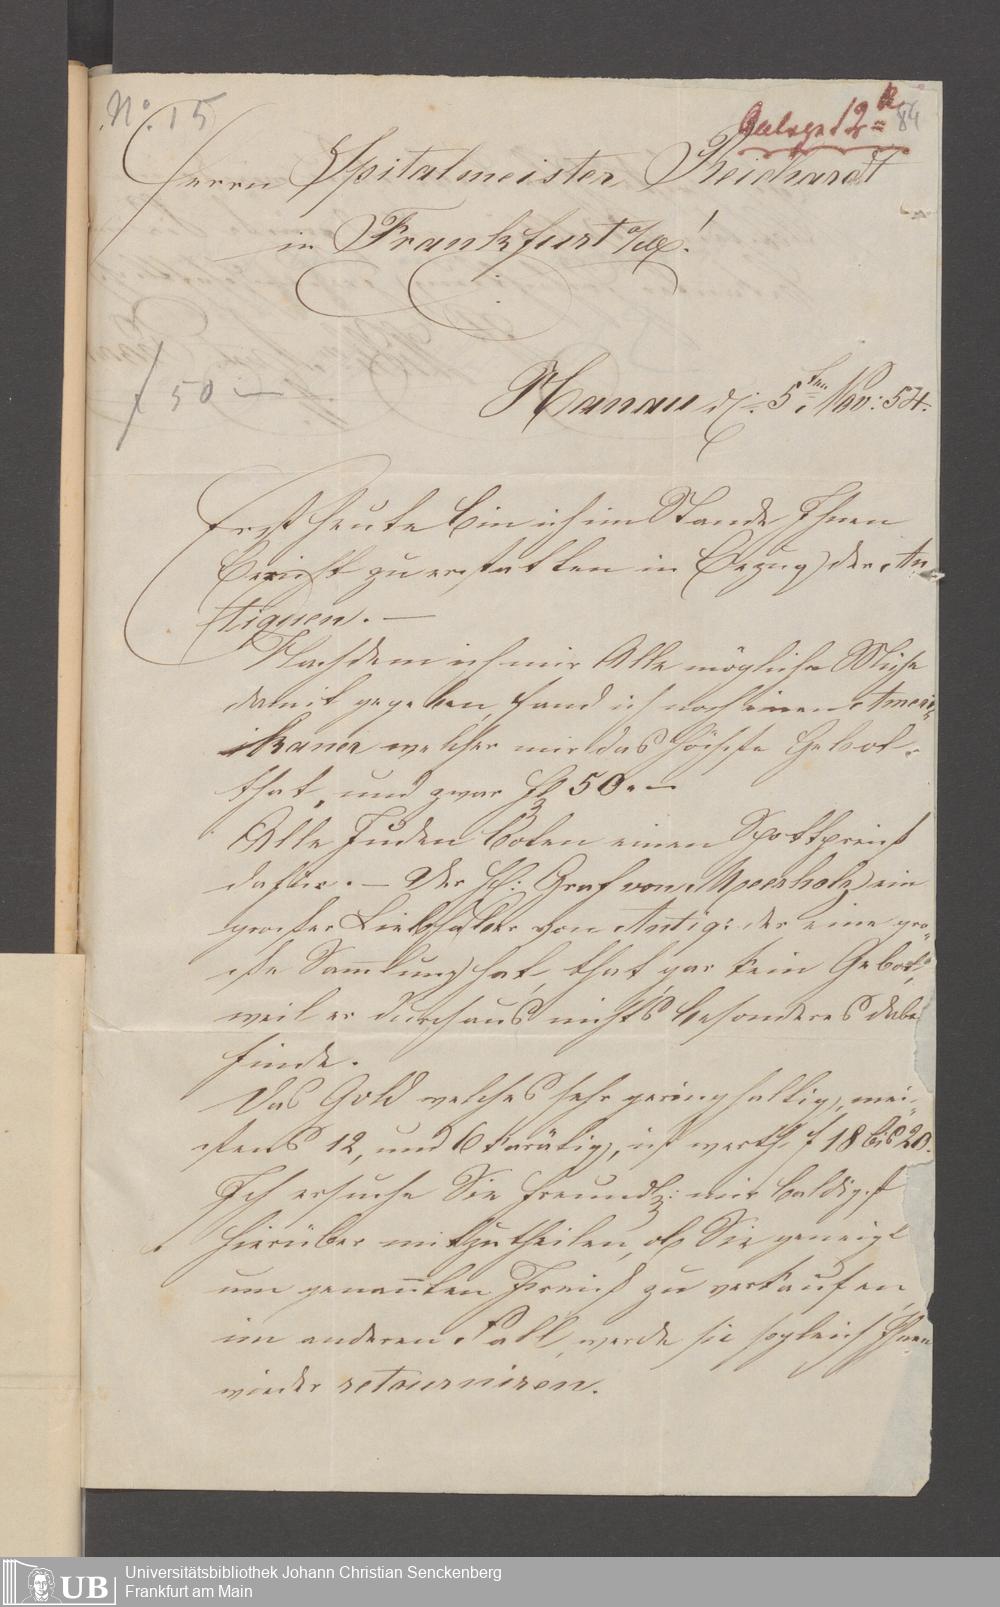 No. 15
Anlage 12
84
Herrn Spitalmeister Reichardt
in Frankfurt a/M!
f 50 —
Hanau d: 5ten Nov: 54.
Erst heute bin ich im Stande Ihnen
Bericht zu erstatten in Bezug der An
tiquen. —
Nachdem ich mir Alle mögliche Mühe
damit gegeben, fand ich noch einen Ameri-
kaner welcher mir das höchste Gebot
that, und zwar fl 50. —
Alle Juden boten einen Spottpreiß
dafür. — Der H: Graf von Meerholz ein
großer Liebhaber von Antiq: der eine gro-
ße Sammlung hat, that gar kein Gebot,
weil er durchaus nichts besonderes dabei
finde.
Das Gold welches sehr geringhaltig, mei-
stens 12, und 6 karätig, ist werth f 18 bis 20.
Ich ersuche Sie freundl: mir baldigst
hierüber mitzutheilen, ob Sie geneigt
um genannten Preiß zu verkaufen,
im anderen Fall, werde sie sogleich Ihnen
wieder retourniren.
UB
Universitätsbibliothek Johann Christian Senckenberg
Frankfurt am Main